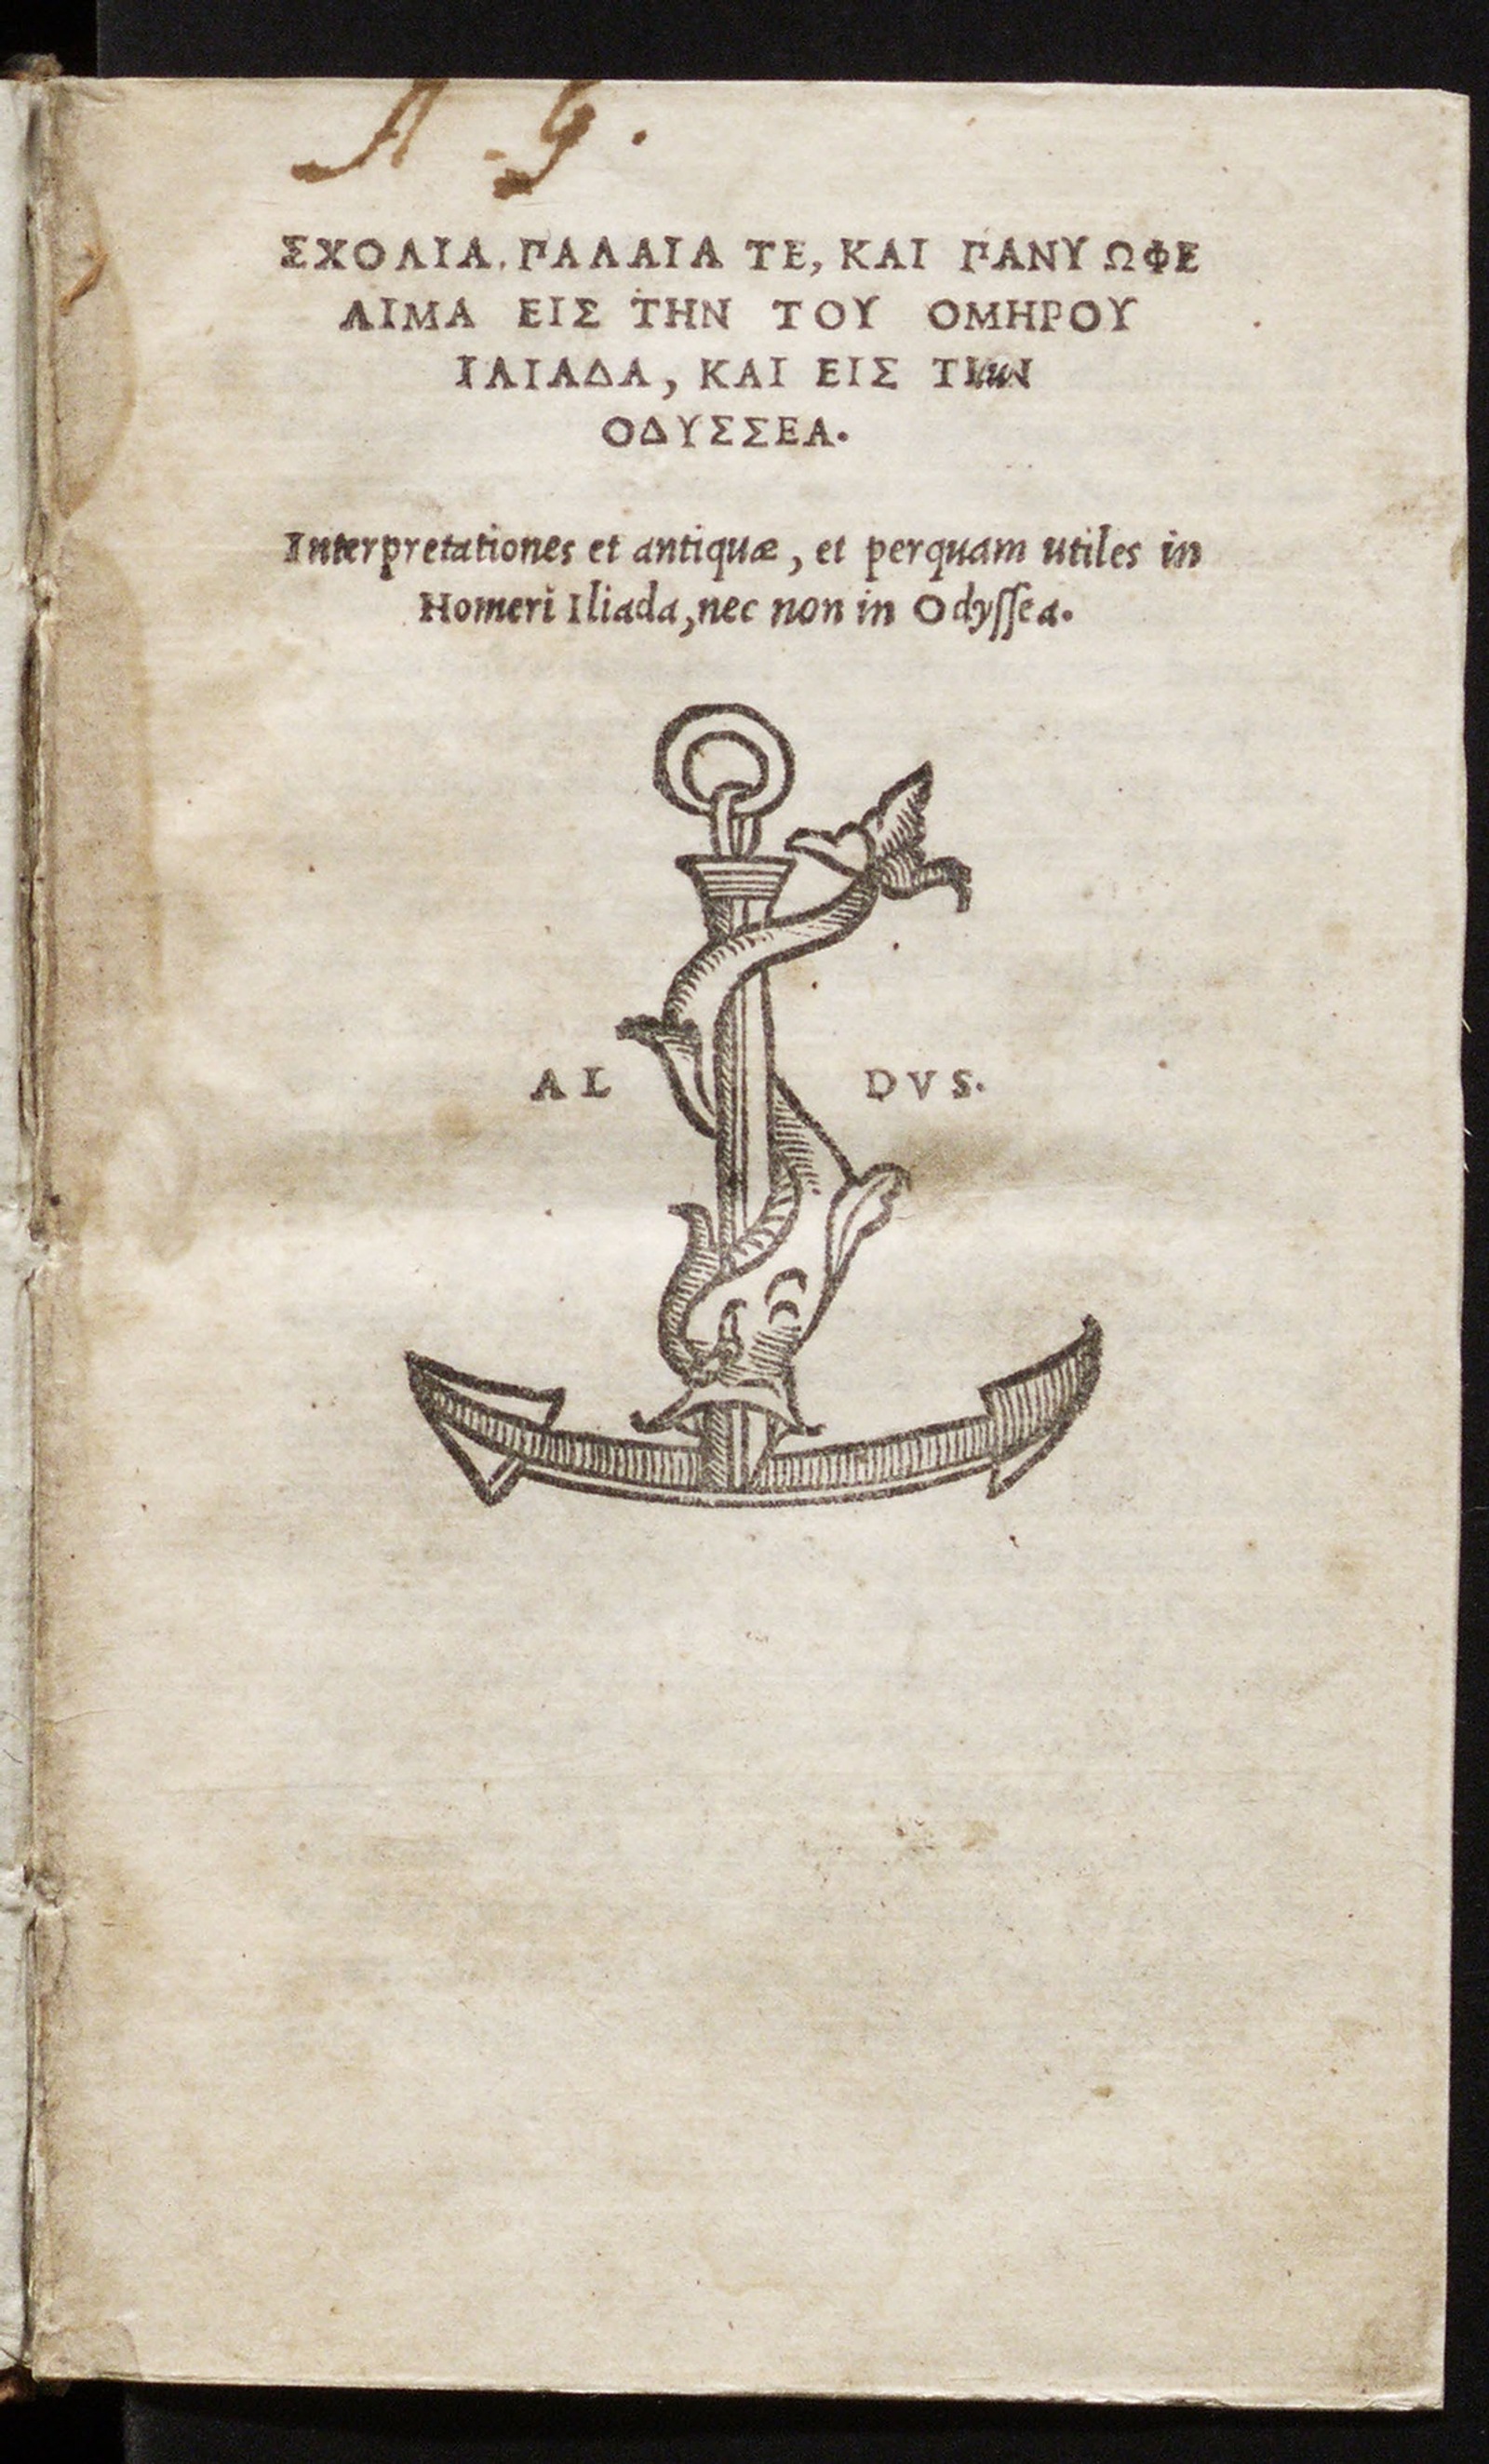 A. G.
ΣΧΟΛΙΑ. ΠΑΛΑΙΑ ΤΕ, ΚΑΙ ΠΑΝΥ ΩΦΕ
ΛΙΜΑ ΕΙΣ ΤΗΝ ΤΟΥ ΟΜΗΡΟΥ
ΙΛΙΑΔΑ, ΚΑΙ ΕΙΣ ΤΗΝ
ΟΔΥΣΣΕΑ.
Interpretationes et antiquæ, et perquam utiles in
Homeri Iliada, nec non in Odyſſea.
AL DVS.